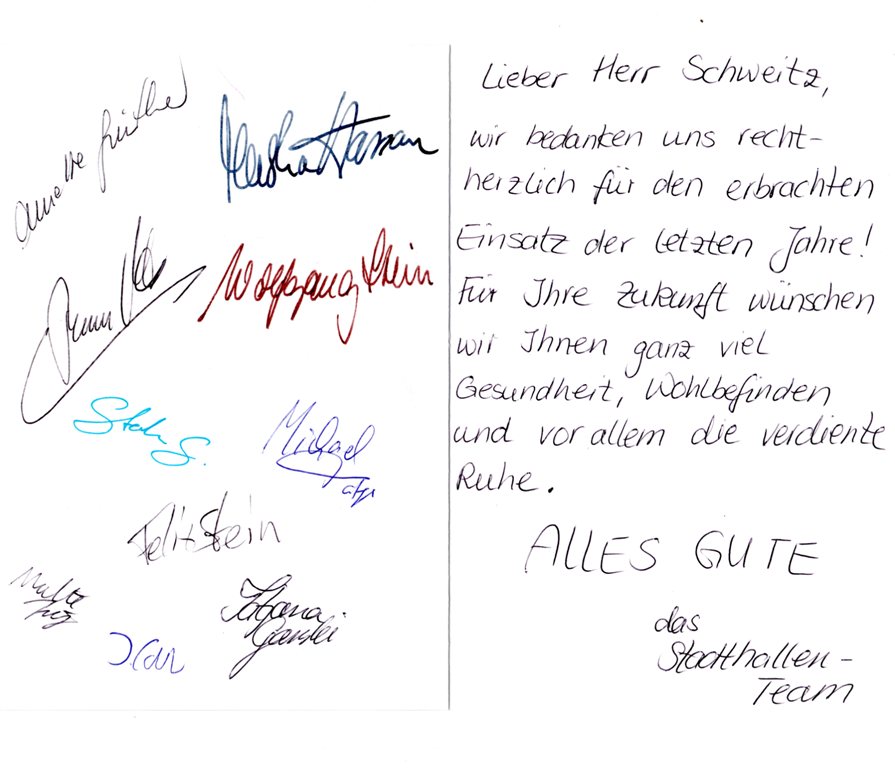 Annette Günther
Hassan
Wolfgang Stein
Stefan S.
Michael
Felix Stein
Malte
Tatjana
Lieber Herr Schweitz,
wir bedanken uns recht-
herzlich für den erbrachten
Einsatz der letzten Jahre!
Für Ihre Zukunft wünschen
wir Ihnen ganz viel
Gesundheit, Wohlbefinden
und vor allem die verdiente
Ruhe.
ALLES GUTE
das
Stadthallen-
Team